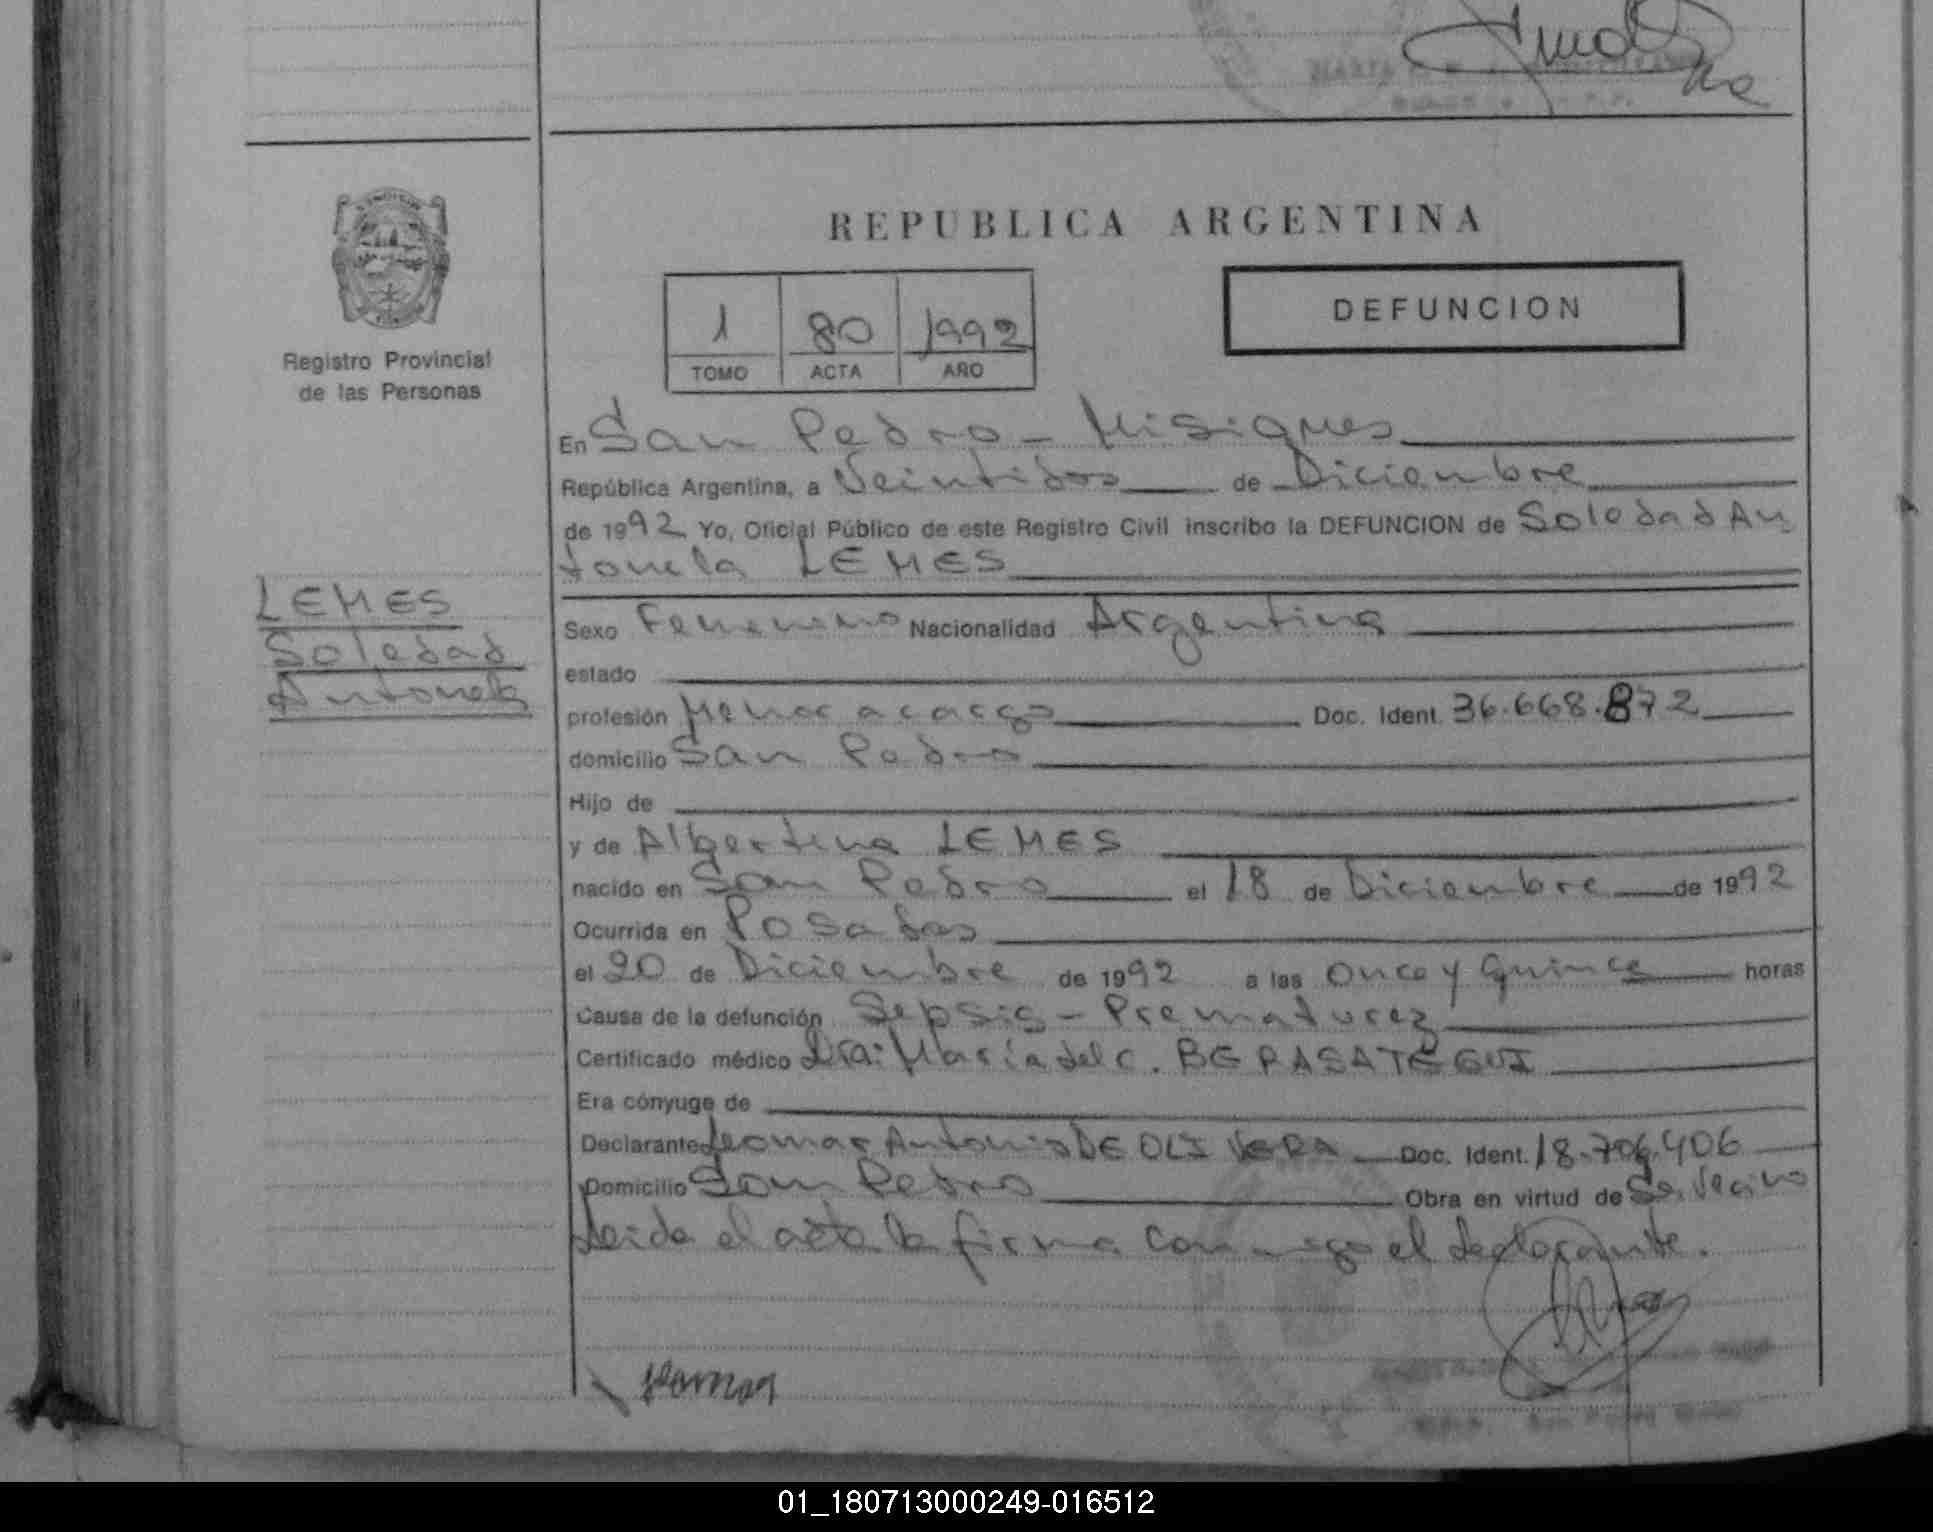 REPUBLICA ARGENTINA
DEFUNCION
1 80 1992
TOMO ACTA AÑO
Registro Provincial
de las Personas
En San Pedro - Misiones
República Argentina, a Veintidos de Diciembre
de 1992 Yo, Oficial Público de este Registro Civil inscribo la DEFUNCION de Soledad An
tonela LEMES
LEMES
Soledad
Antonela
Sexo Femenino Nacionalidad Argentina
estado
profesión Menor a cargo Doc. Ident. 36.668.872
domicilio San Pedro
Hijo de
y de Albertina LEMES
nacido en San Pedro el 18 de Diciembre de 1992
Ocurrida en Posadas
el 20 de Diciembre de 1992 a las Once y Quince horas
Causa de la defunción Sepsis - Prematurez
Certificado médico Dra: María del C. BERASATEGUI
Era cónyuge de
Declarante Leomar Antonio DE OLIVERA Doc. Ident. 18.706.406
Domicilio San Pedro Obra en virtud de Ser Vecino
Leida el acta la firma conmigo el declarante.
01_180713000249-016512